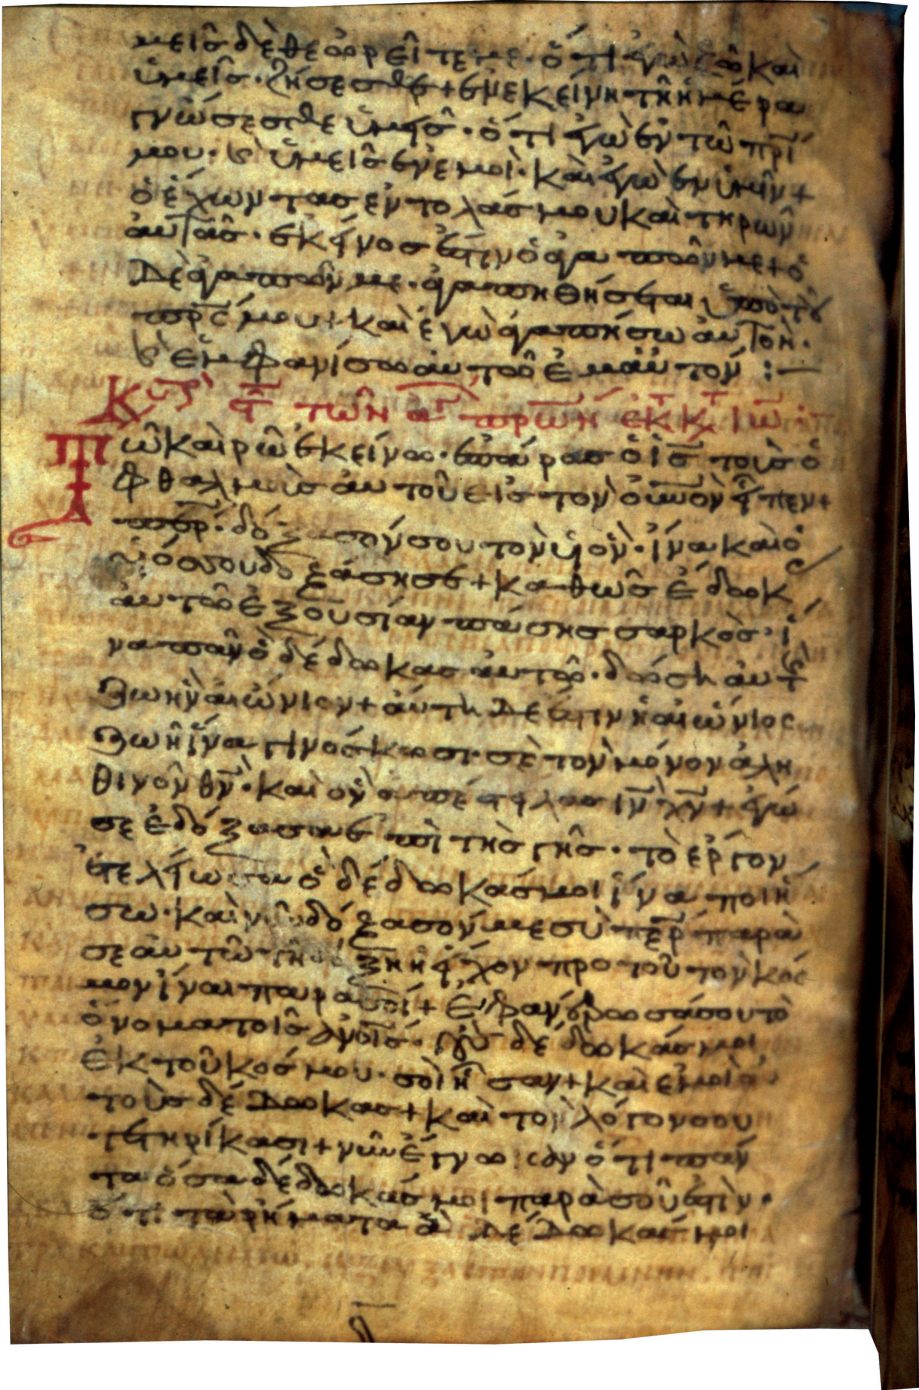 μεῖς δὲ θεωρεῖτέ με· ὅτι ἐγὼ ζῶ καὶ
ὑμεῖς ζήσεσθε + ἐν ἐκείνη τῆ ἡμέρα
γνώσεσθε ὑμεῖς · ὅτι ἐγὼ ἐν τῶ πρί
μου · καὶ ὑμεῖς ἐν ἐμοὶ · καὶ ἐγὼ ἐν ὑμῖν +
ὁ ἔχων τὰς ἐντολάς μου καὶ τηρῶν
αὐτὰς · ἐκεῖνος ἐστὶν ὁ ἀγαπῶν με + ὁ
δὲ ἀγαπῶν με · ἀγαπηθήσεται ὑπὸ τοῦ
πρς μου + καὶ ἐγὼ ἀγαπήσω αὐτὸν ·
καὶ ἐμφανίσω αὐτῶ ἐμαυτόν :—
τῶν ἁγ πρων ἐκ κτ Ἰω
Τῶ καιρῶ ἐκείνω · ἐπάρας ὁ ις τοὺς ὀ
φθαλμοὺς αὐτοῦ εἰς τὸν οὐνὸν εἶπεν +
περ · δόξασόν σου τὸν υἱὸν · ἵνα καὶ ὁ
υἱός σου δοξάση σε + καθὼς ἔδωκ
αὐτῶ ἐξουσίαν πάσης σαρκὸς · ἵ
να πᾶν ὃ δέδωκας αὐτῶ · δώση αὐτ
ζωὴν αἰώνιον + αὕτη δέ ἐστιν ἡ αἰώνιος
ζωὴ ἵνα γινώσκωσι σὲ τὸν μόνον ἀλη
θινὸν θν · καὶ ὃν ἀπέστειλας ιν χν + ἐγώ
σε ἐδόξασα ἐπὶ τῆς γῆς · τὸ ἔργον
ἐτελείωσα ὃ δέδωκάς μοι ἵνα ποιή
σω · καὶ νῦν δόξασόν με σὺ περ παρὰ
σεαυτῶ τῆ δόξη ἧ εἶχον πρὸ τοῦ τὸν κόσ
μον εἶναι παρὰ σοί + ἐφανέρωσά σου τὸ
ὄνομα τοῖς ἀνοις · οὓς δέδωκάς μοι
ἐκ τοῦ κόσμου · σοὶ ἦσαν + καὶ ἐμοὶ αὐ
τοὺς δέδωκας + καὶ τὸν λόγον σου
τετηρήκασι + νῦν ἔγνωσαν ὅτι πάν
τα ὅσα δέδωκάς μοι παρὰ σοῦ ἐστὶν ·
ὅτι τὰ ῥήματα ἃ δέδωκάς μοι